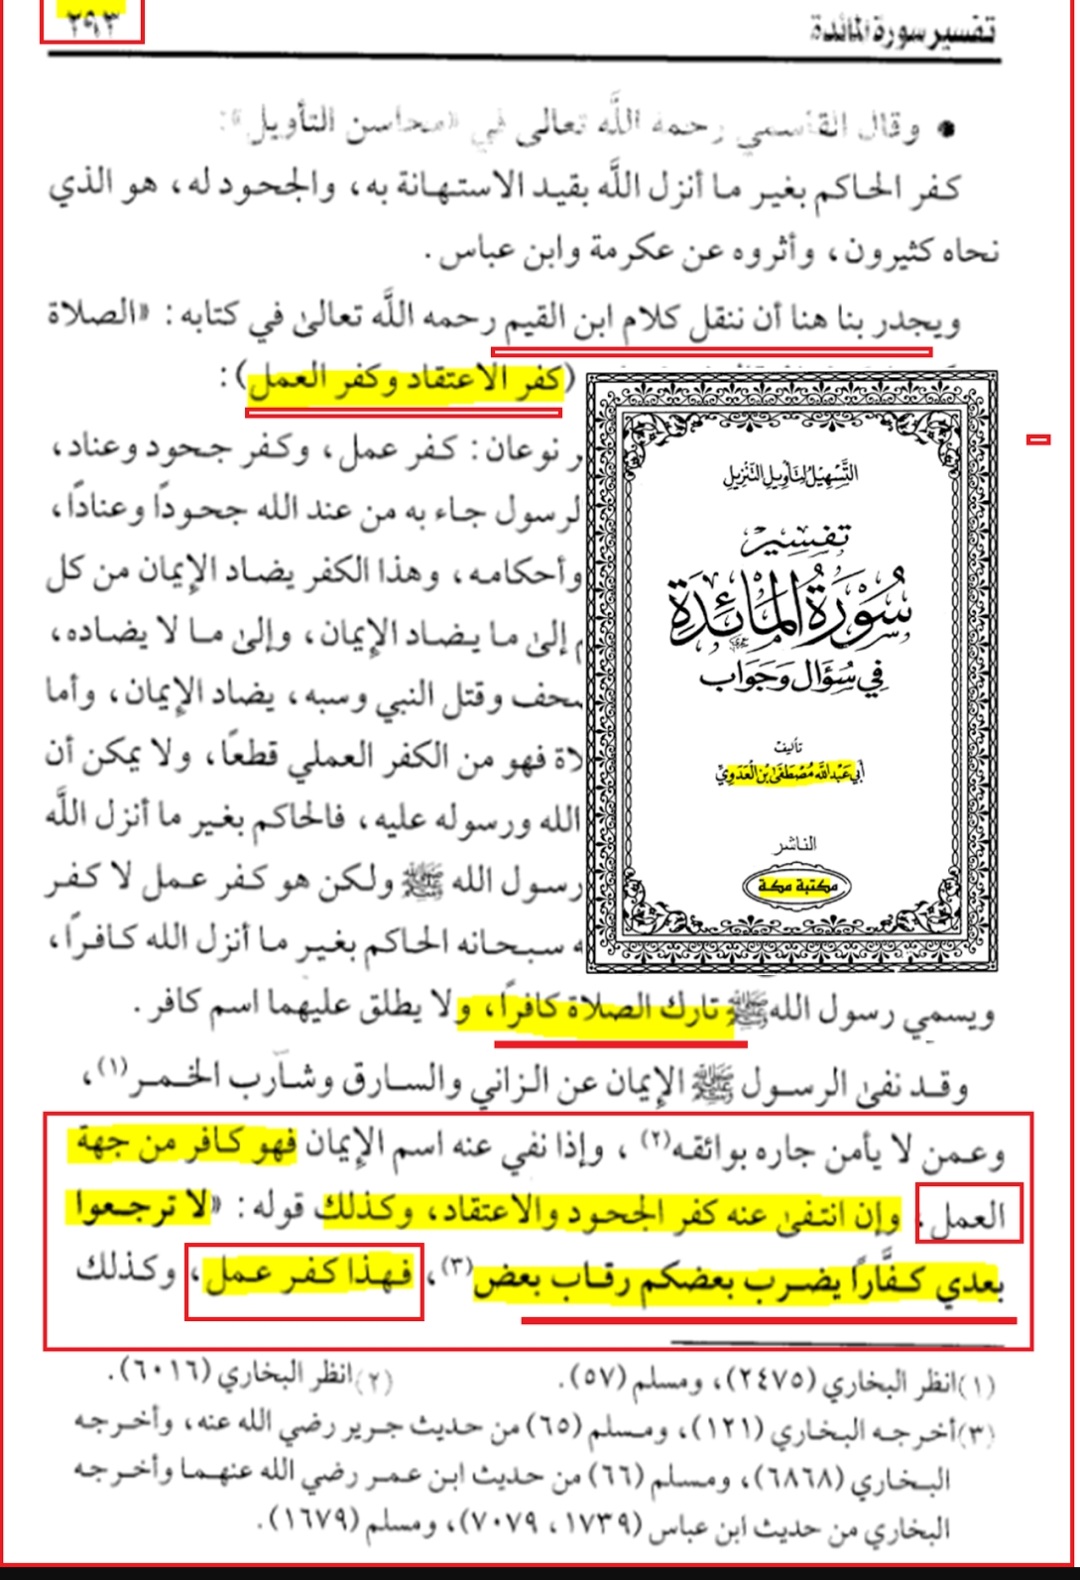 تفسير سورة المائدة
٢٩٣
• وقال القاسمي رحمه اللَّه تعالى في «محاسن التأويل»:
كفر الحاكم بغير ما أنزل اللَّه بقيد الاستهانة به، والجحود له، هو الذي
نحاه كثيرون، وأثروه عن عكرمة وابن عباس.
ويجدر بنا هنا أن ننقل كلام ابن القيم رحمه اللَّه تعالىٰ في كتابه: «الصلاة
(كفر الاعتقاد وكفر العمل):
ر نوعان: كفر عمل، وكفر جحود وعناد،
لرسول جاء به من عند الله جحودًا وعنادًا،
وأحكامه، وهذا الكفر يضاد الإيمان من كل
م إلىٰ ما يضاد الإيمان، وإلىٰ ما لا يضاده،
صحف وقتل النبي وسبه، يضاد الإيمان، وأما
لاة فهو من الكفر العملي قطعًا، ولا يمكن أن
الله ورسوله عليه، فالحاكم بغير ما أنزل اللَّه
رسول الله ﷺ ولكن هو كفر عمل لا كفر
ه سبحانه الحاكم بغير ما أنزل الله كافرًا،
التَّسْهِيلُ لِتَأْوِيلِ التَّنْزِيلِ
تَفْسِيرُ
سُورَةُ المَائِدَةِ
فِي سُؤَالٍ وَجَوَابٍ
تأليف
أَبِي عَبْدِ اللَّهِ مُصْطَفَىٰ بْنِ الْعَدَوِيِّ
الناشر
مكتبة مكة
ويسمي رسول الله ﷺ تارك الصلاة كافرًا، ولا يطلق عليهما اسم كافر.
وقد نفىٰ الرسول ﷺ الإيمان عن الزاني والسارق وشارب الخمر(١)،
وعمن لا يأمن جاره بوائقه(٢)، وإذا نفي عنه اسم الإيمان فهو كافر من جهة
العمل، وإن انتفىٰ عنه كفر الجحود والاعتقاد، وكذلك قوله: «لا ترجعوا
بعدي كفَّارًا يضرب بعضكم رقاب بعض(٣)، فهذا كفر عمل، وكذلك
(١)انظر البخاري (٢٤٧٥)، ومسلم (٥٧). (٢)انظر البخاري (٦٠١٦).
(٣)أخرجه البخاري (١٢١)، ومسلم (٦٥) من حديث جرير رضي الله عنه، وأخرجه
البخاري (٦٨٦٨)، ومسلم (٦٦) من حديث ابن عمر رضي الله عنهما وأخرجه
البخاري من حديث ابن عباس (١٧٣٩، ٧٠٧٩)، ومسلم (١٦٧٩).